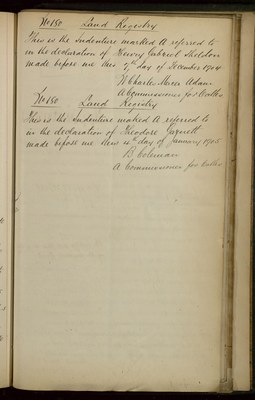 No 150 Land Registry
This is the Indenture marked A referred to
in the declaration of Henry Gabriel Sheldon
made before me this 7th day of December 1904
W Charles Adam
A Commissioner for Oaths
No 150 Land Registry
This is the Indenture marked A referred to
in the declaration of Theodore
made before me this day of January 1905
B Coleman
A Commissioner for Oaths